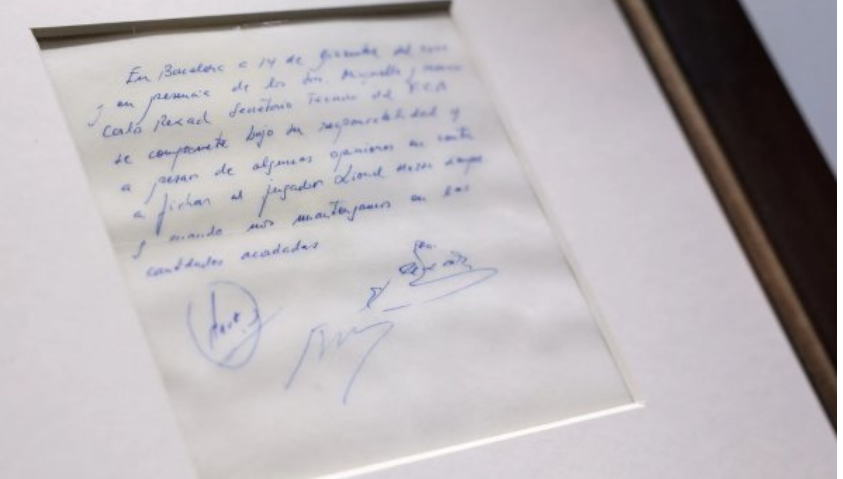 En Barcelona a 14 de diciembre del 2000
y en presencia de los Srs. Minguella y Horacio
Carlos Rexach Secretario Técnico del F.C.B
se compromete bajo su responsabilidad y
a pesar de algunas opiniones en contra
a fichar al jugador Lionel Messi siempre
y cuando nos mantengamos en las
cantidades acordadas